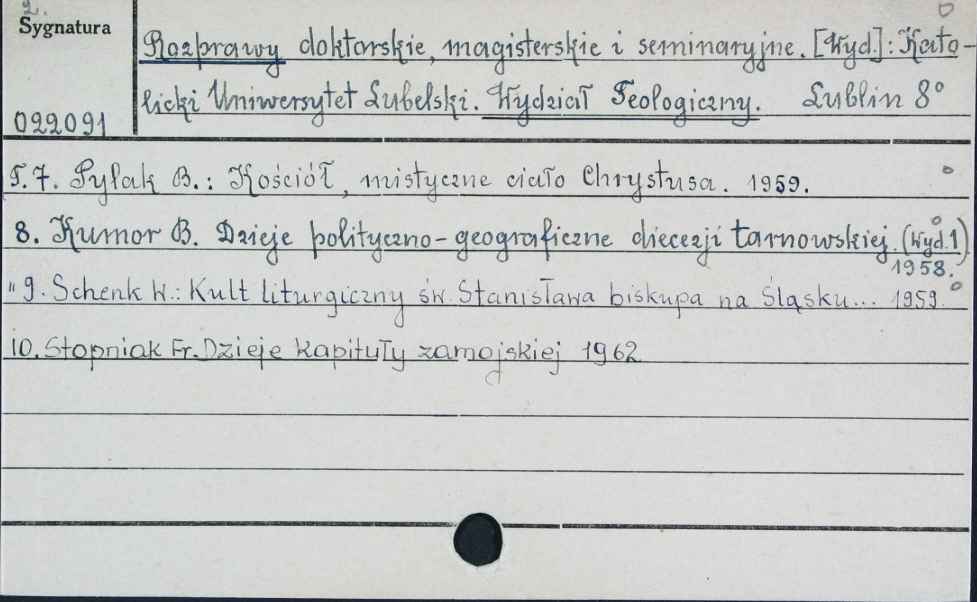 2.
Sygnatura
022091
Rozprawy doktorskie, magisterskie i seminaryjne. [Wyd.]: Kato-
licki Uniwersytet Lubelski. Wydział Teologiczny. Lublin 8°
T. 7. Pylak B.: Kościół, mistyczne ciało Chrystusa. 1959.
8. Kumor B. Dzieje polityczno-geograficzne diecezji tarnowskiej. (Wyd. 1)
1958.
" 9. Schenk W.: Kult liturgiczny św. Stanisława biskupa na Śląsku... 1959.
10. Stopniak Fr. Dzieje kapituły zamojskiej 1962